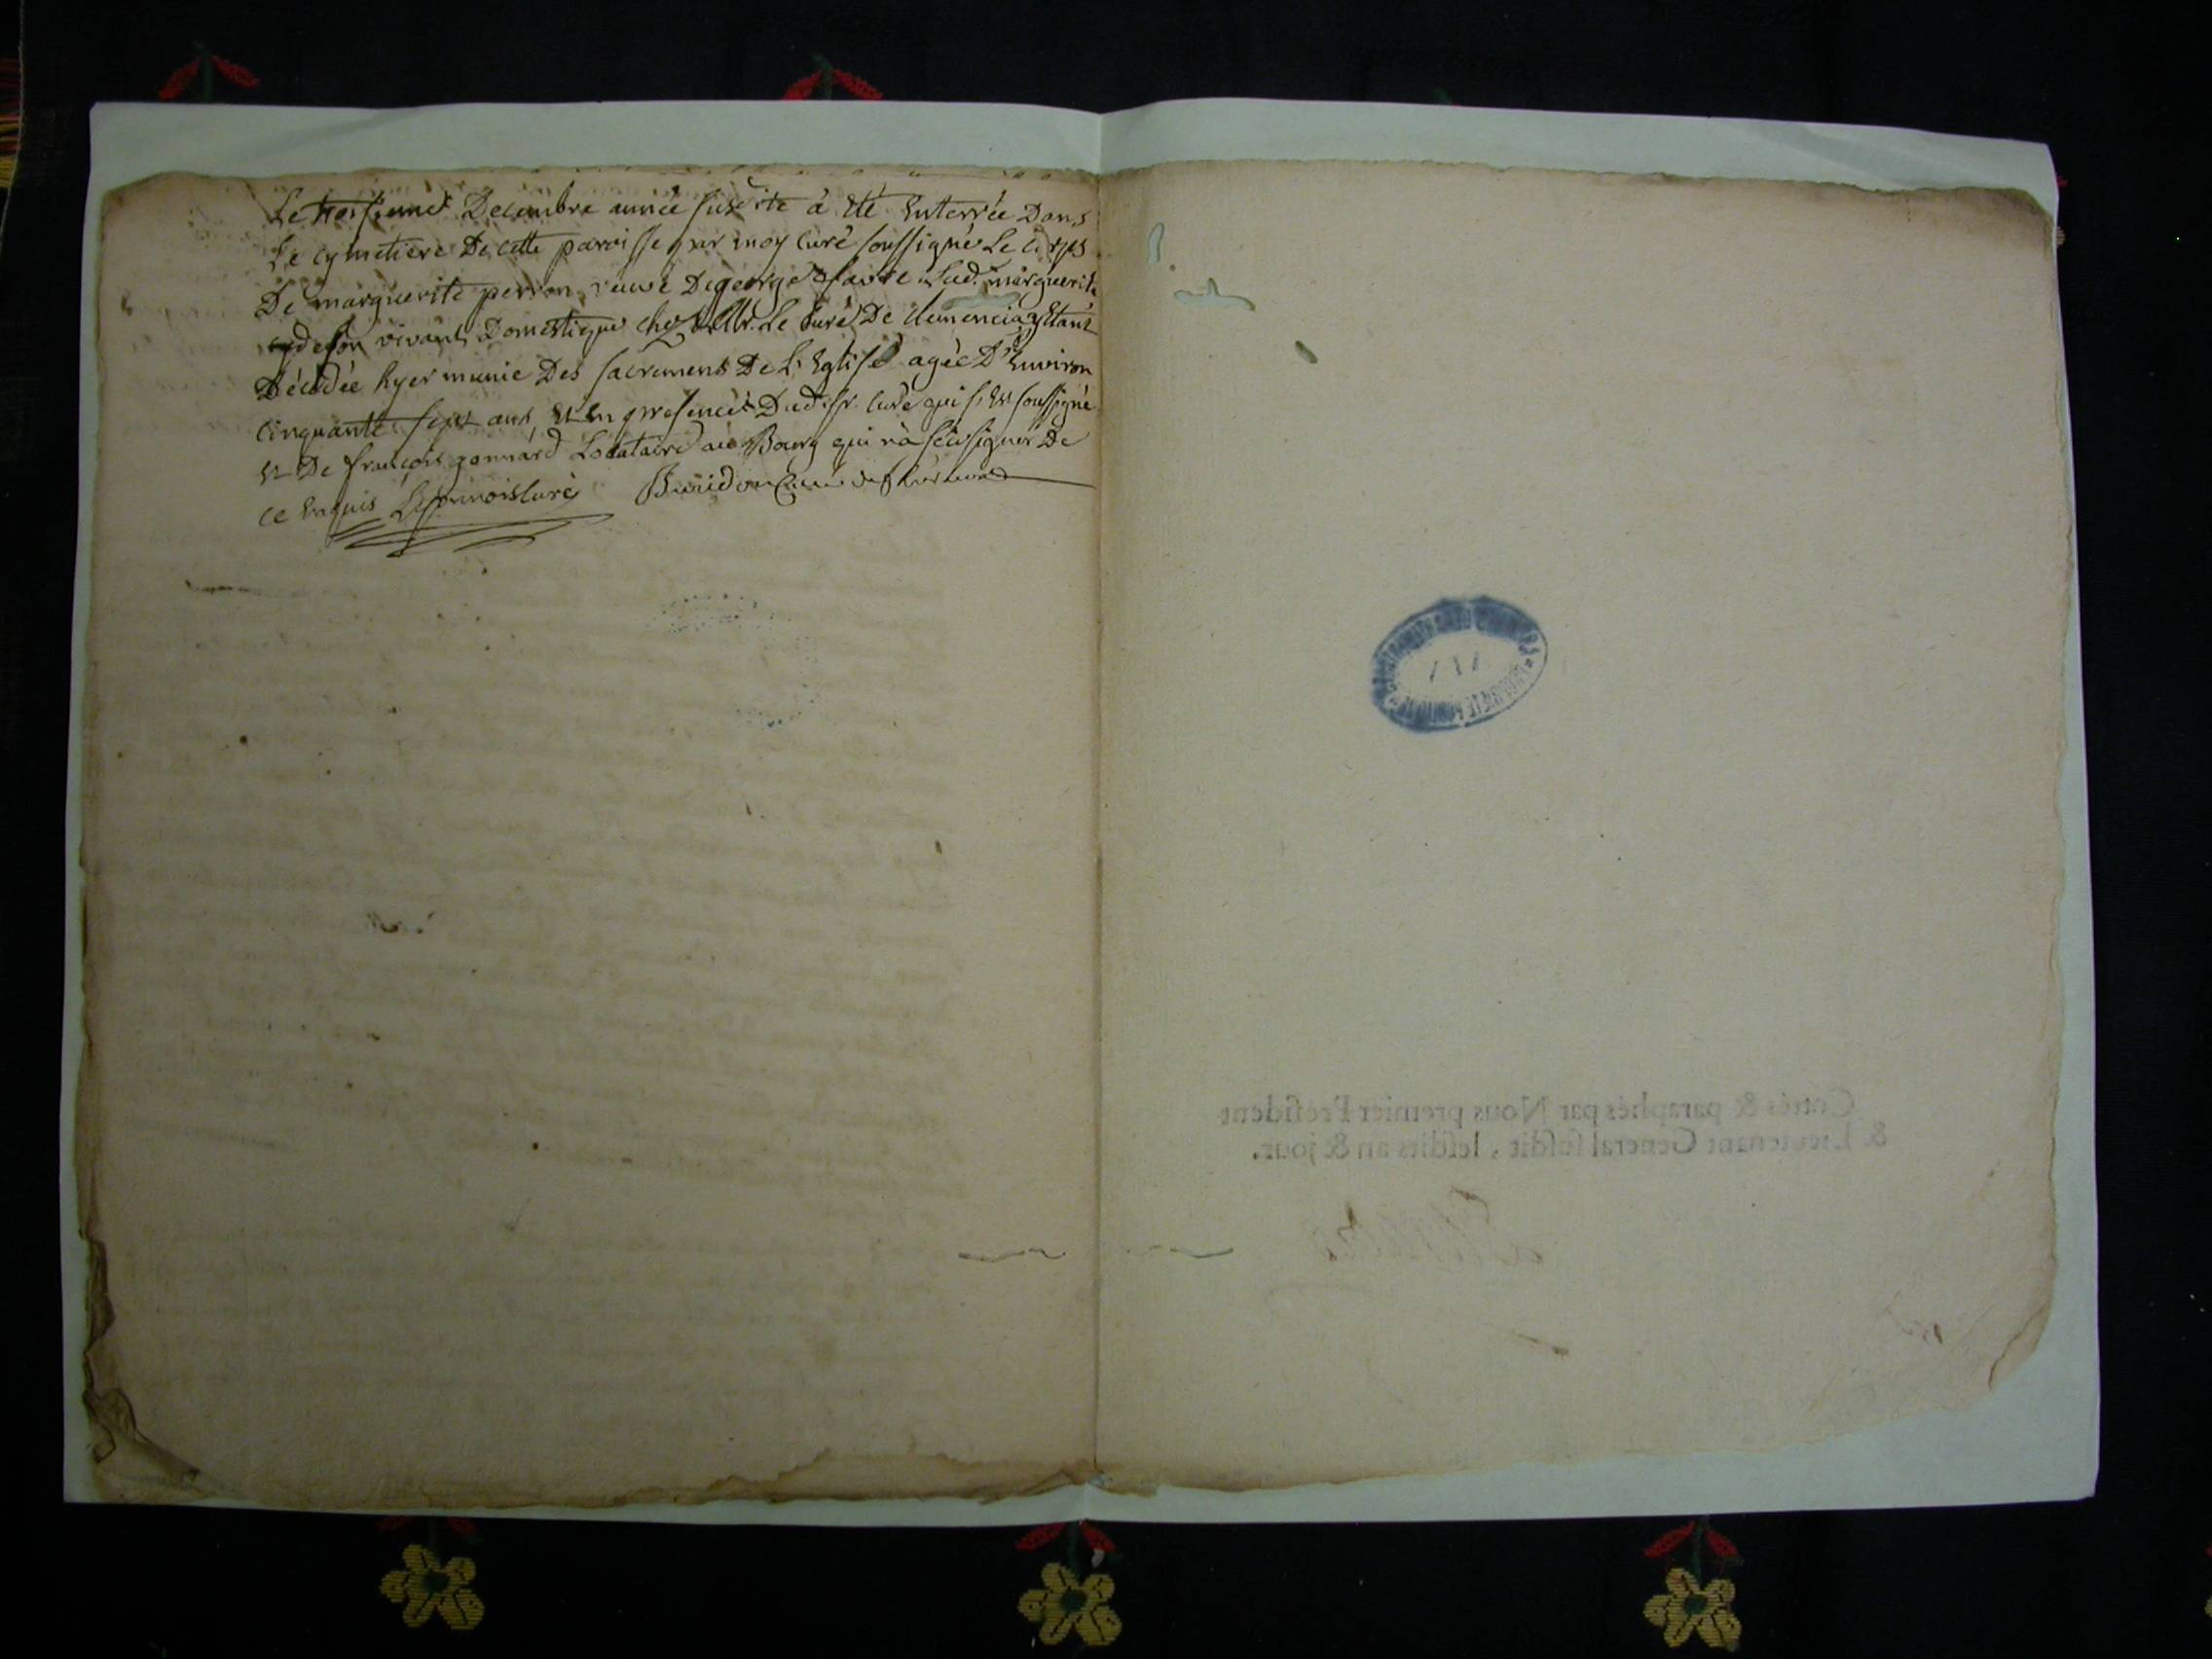 Le troisieme Decembre année susdite à été Enterrée Dans
Le cymetiere De cette paroisse par moy curé soussigné Le corps
De marguerite perron veuve De george favre Lad. marguerite
de son vivant Domestique chez Mr. Le Curé De clemencia yétant
Décédée hyer munie Des sacrements De L'Eglise agée D'Environ
cinquante sept ans, Et En presence Dud. sr. curé qui s'Est soussigné
Et De françois gonnard Locataire au Bourg qui n'a sçu signer De
ce Enquis curé curé
Cottés & paraphés par Nous premier Président
& Lieutenant General susdit, lesdits an & jour.